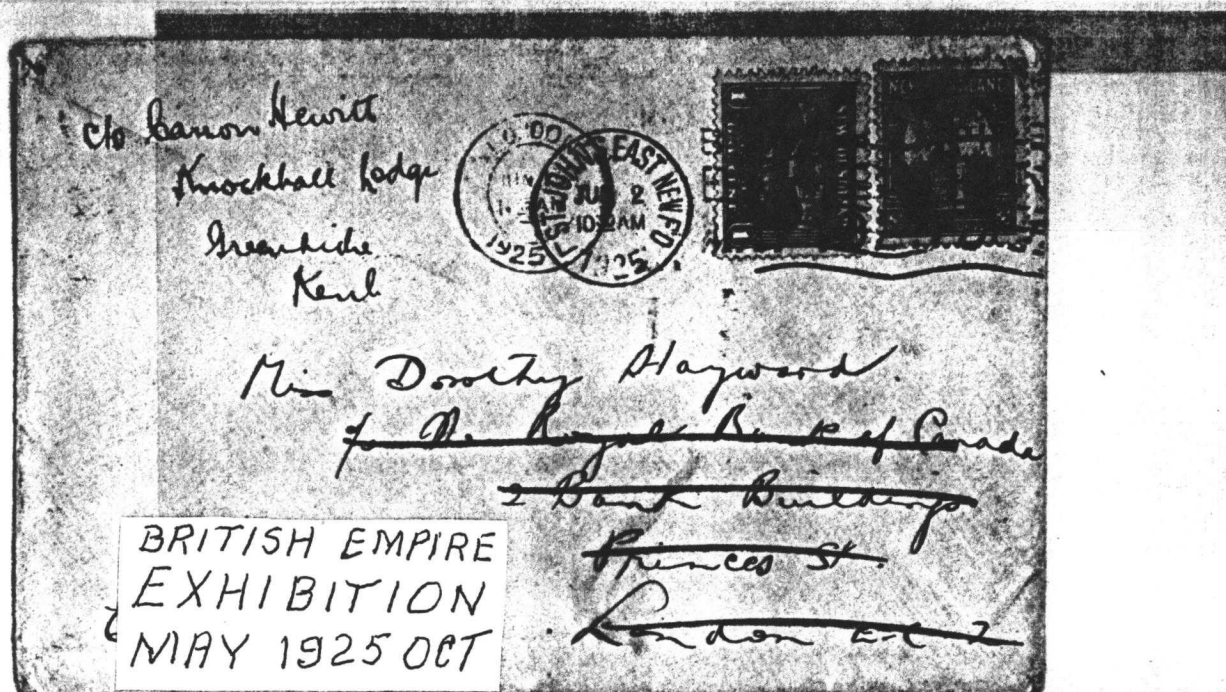 c/o Canon Hewitt
Knockhall Lodge
Greenhithe
Kent
LONDON
1925
ST. JOHN'S EAST NEWF'D
JUN 2
10 AM
1925
NEWFOUNDLAND
Miss Dorothy Hayward.
c/o The Royal Bank of Canada
2 Bank Buildings
Princes St.
London E.C. 2
BRITISH EMPIRE
EXHIBITION
MAY 1925 OCT